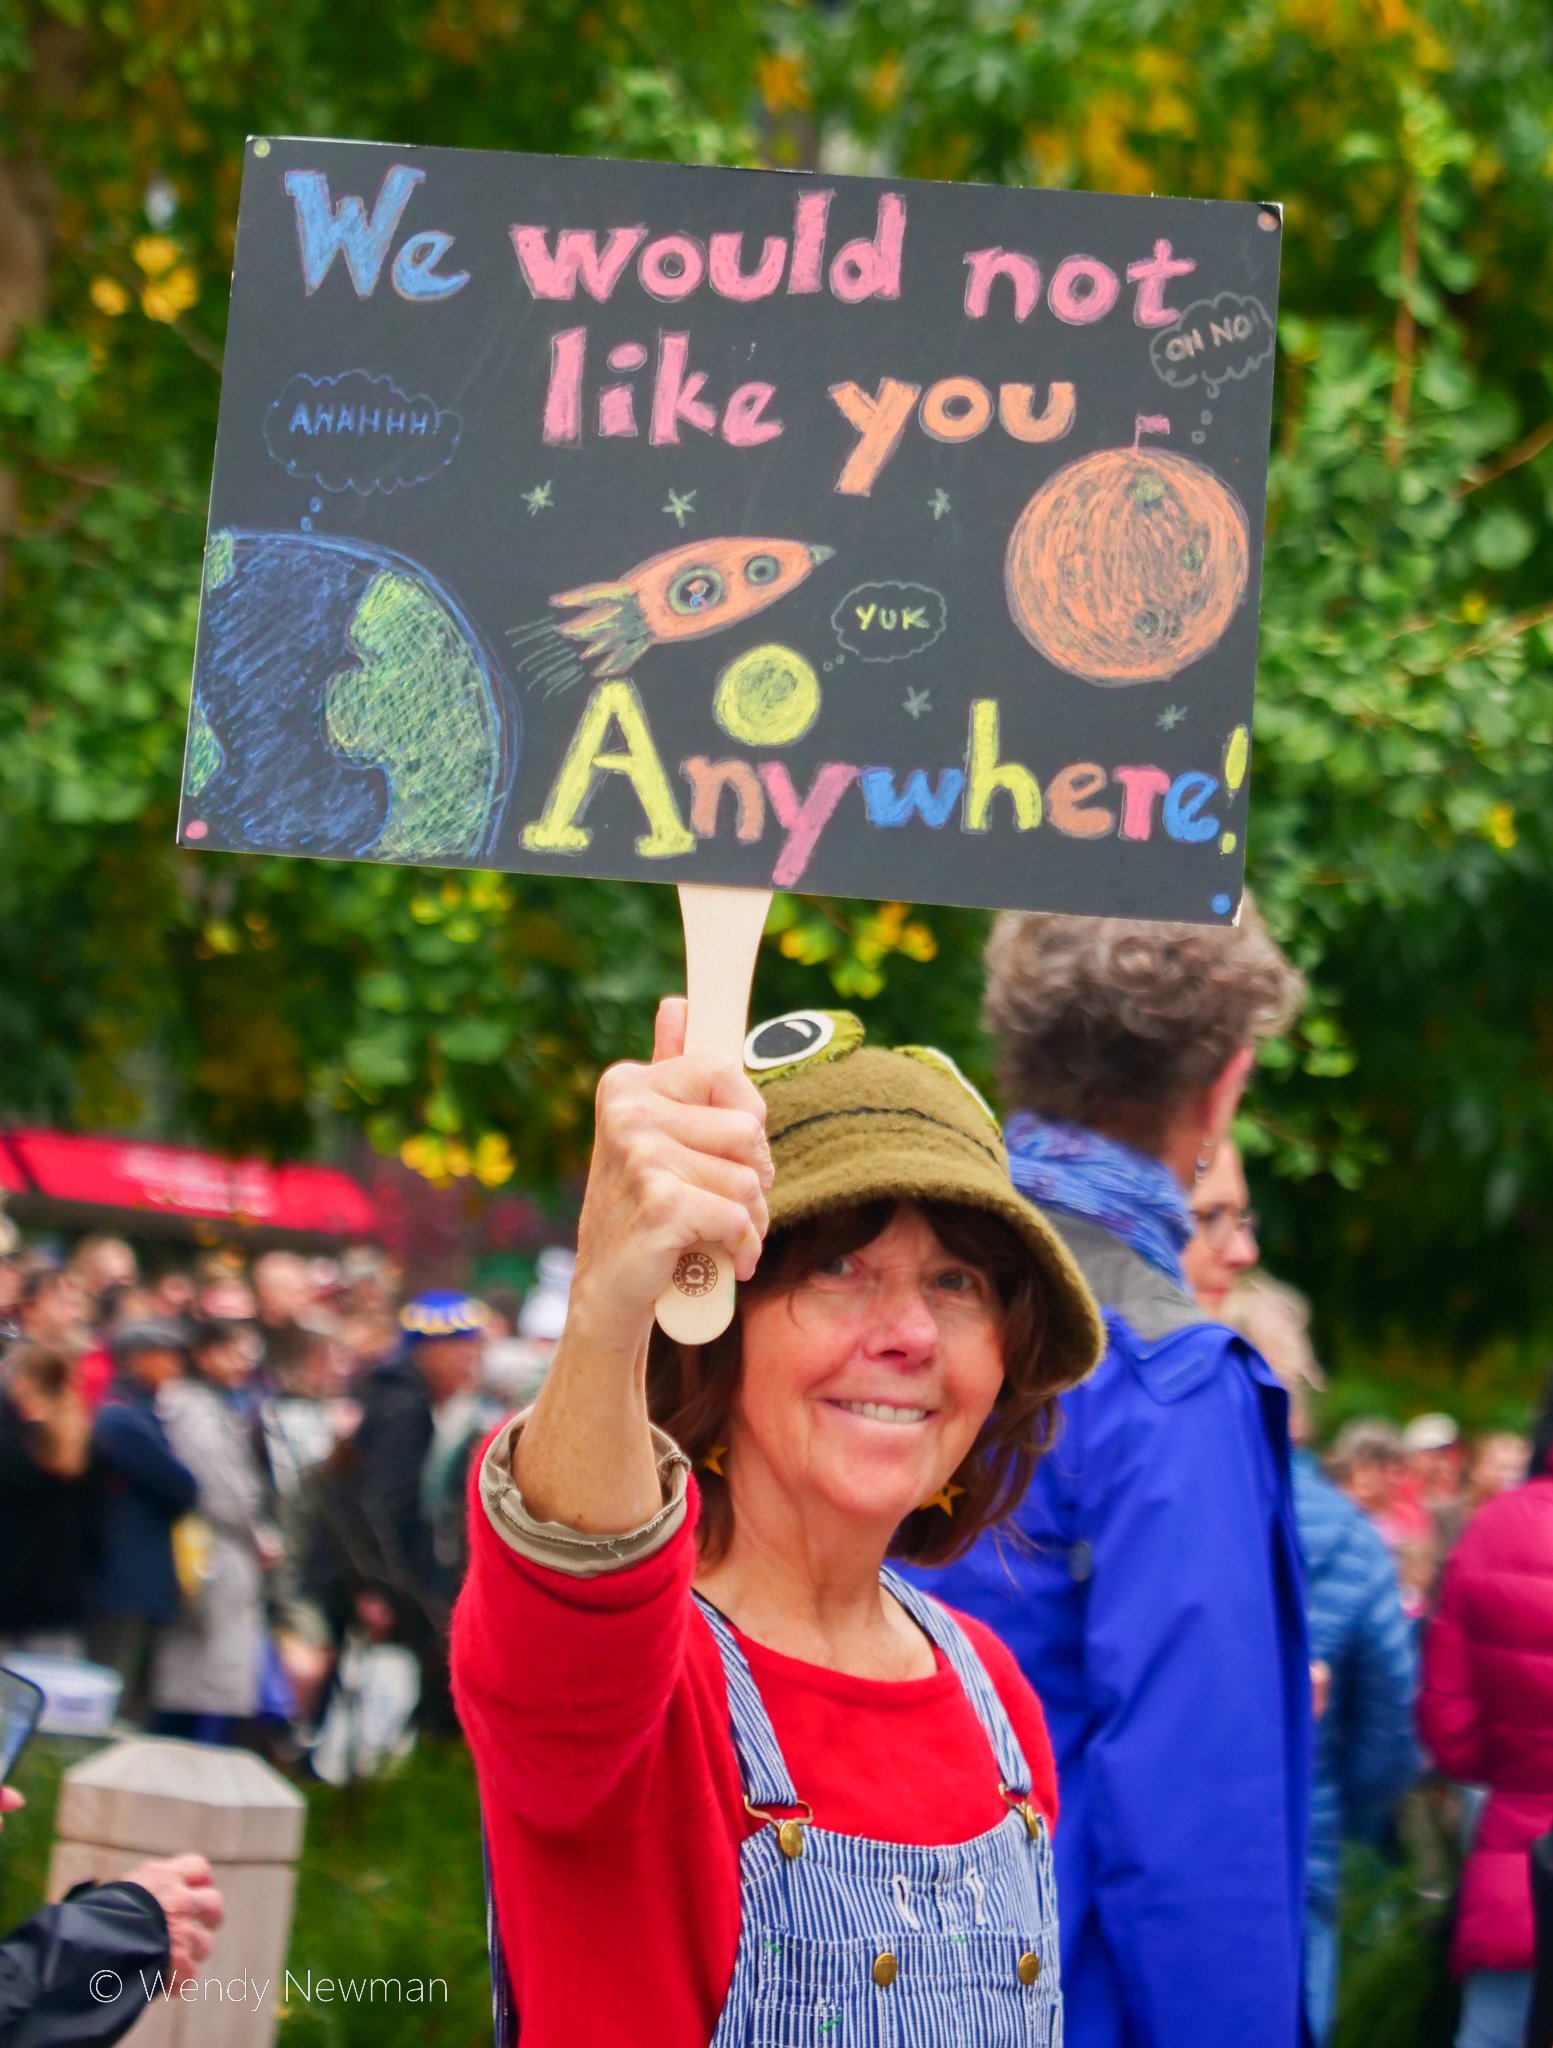 We would not
OH NO!!
like you
AHAHHH!
YUK
Anywhere!
© Wendy Newman